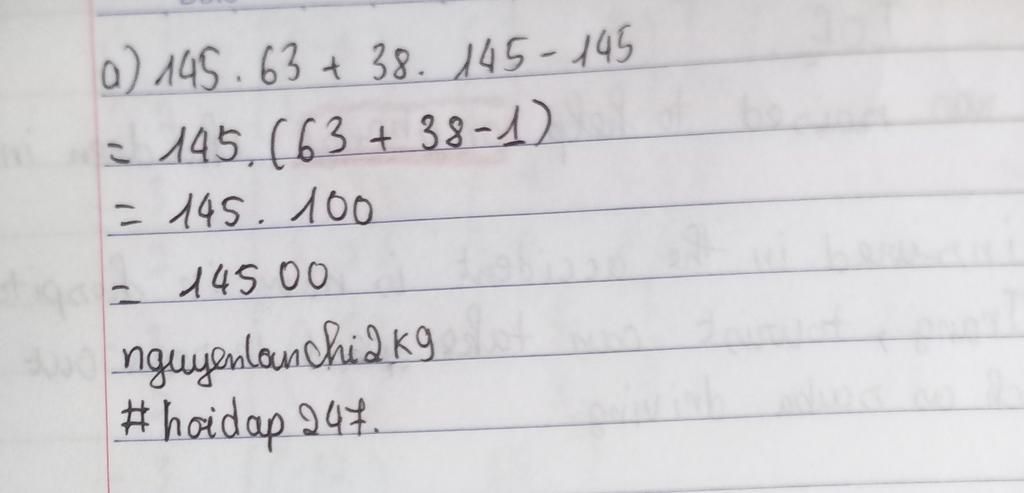 a) 145 . 63 + 38 . 145 - 145
= 145 . (63 + 38 - 1)
= 145 . 100
= 14500
nguyenlanchi2k9
#hoidap247.